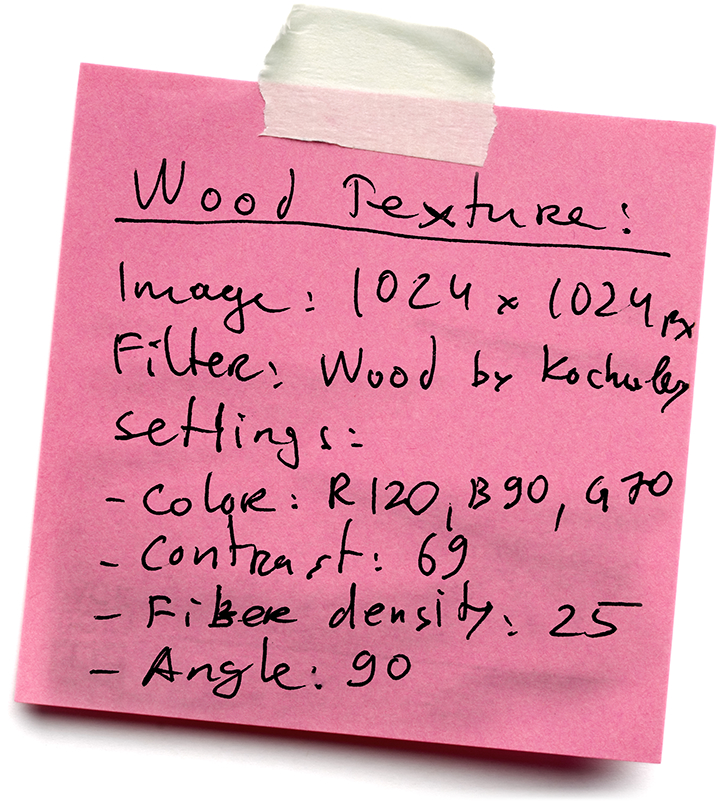 Wood Texture:
Image: 1024 x 1024 px
Filter: Wood by Kochubey
settings:
- Color: R120, B90, G70
- Contrast: 69
- Fiber density: 25
- Angle: 90